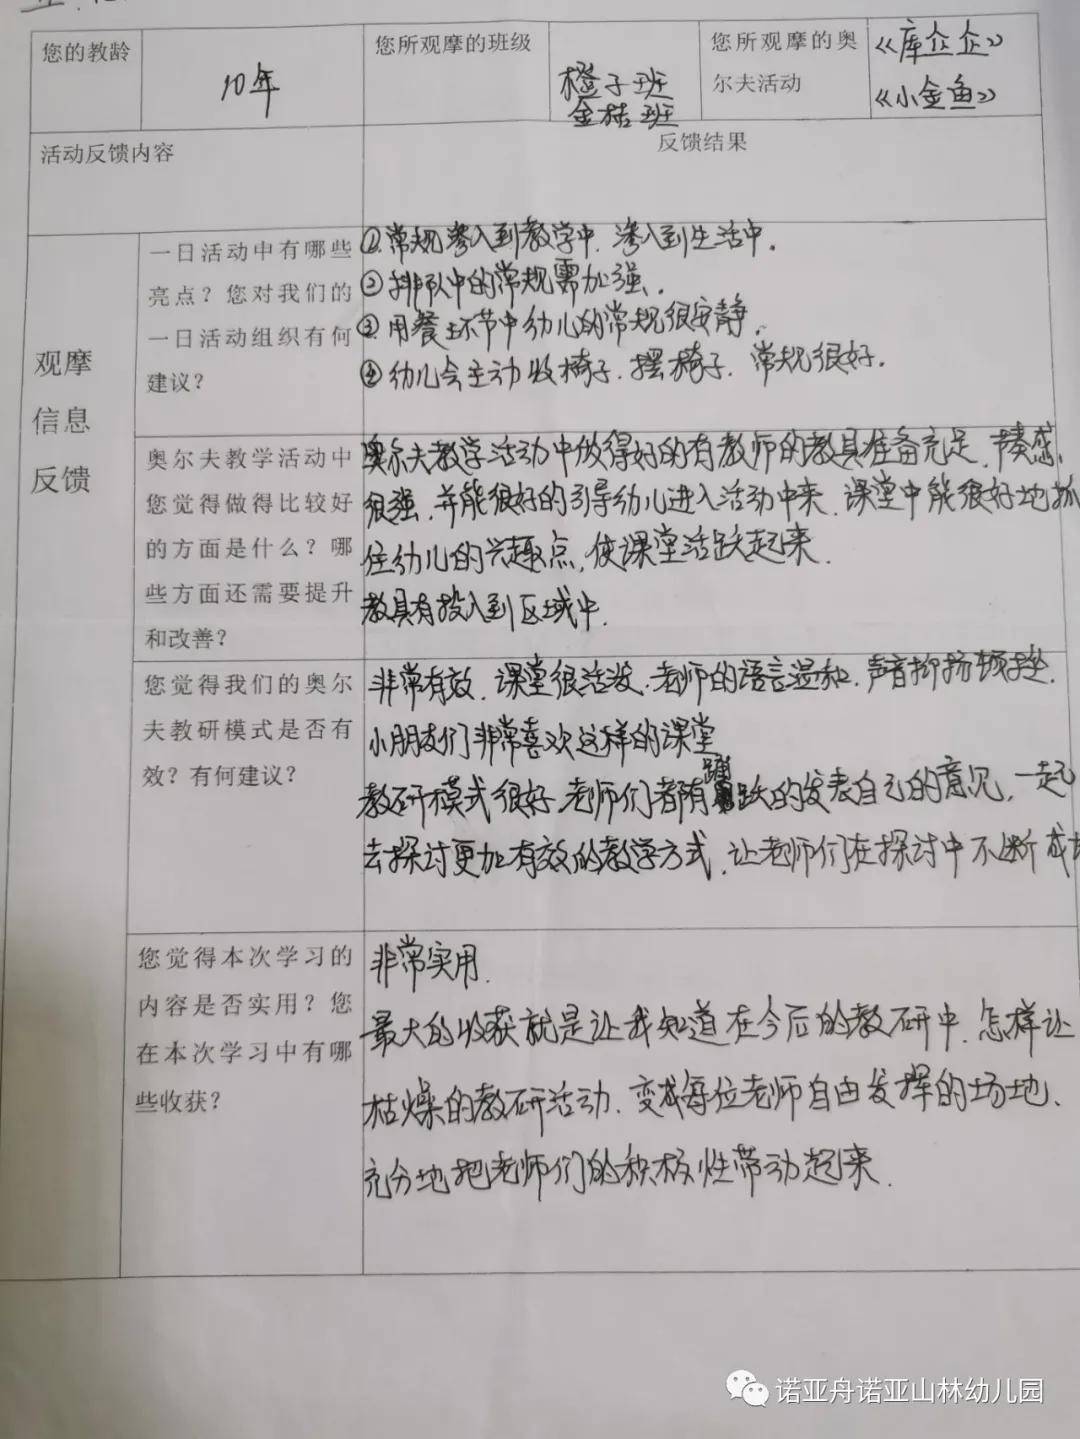 您的教龄
10年
您所观摩的班级
橙子班
金桔班
您所观摩的奥
尔夫活动
《库企企》
《小金鱼》
活动反馈内容
反馈结果
观摩
信息
反馈
一日活动中有哪些
亮点？您对我们的
一日活动组织有何
建议？
①.常规渗入到教学中.渗入到生活中.
②排队中的常规需加强.
③.用餐环节中幼儿的常规很安静.
④幼儿会主动收椅子.摆椅子.常规很好.
奥尔夫教学活动中
您觉得做得比较好
的方面是什么？哪
些方面还需要提升
和改善？
奥尔夫教学活动中做得好的有教师的教具准备充足.节奏感
很强.并能很好的引导幼儿进入活动中来.课堂中能很好地抓
住幼儿的兴趣点,使课堂活跃起来.
教具有投入到区域中.
您觉得我们的奥尔
夫教研模式是否有
效？有何建议？
非常有效.课堂很活泼.老师的语言温和.声音抑扬顿挫.
小朋友们非常喜欢这样的课堂
教研模式很好.老师们都有踊跃的发表自己的意见,一起
去探讨更加有效的教学方式,让老师们在探讨中不断成
您觉得本次学习的
内容是否实用？您
在本次学习中有哪
些收获？
非常实用.
最大的收获就是让我知道在今后的教研中.怎样让
枯燥的教研活动.变成每位老师自由发挥的场地、
充分地把老师们的积极性带动起来.
诺亚舟诺亚山林幼儿园